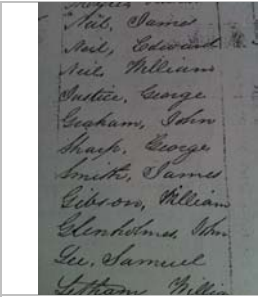 Neil, James
Neil, Edward
Neil, William
Justice, George
Graham, John
Sharp, George
Smith, James
Gibson, William
Glenholmes, John
Lee, Samuel
Letham, Willia